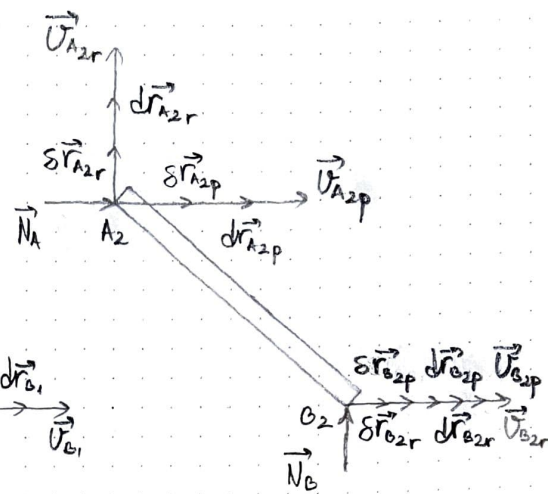 v⃗_A₂r
dr⃗_A₂r
δr⃗_A₂r
δr⃗_A₂p
v⃗_A₂p
N⃗_A
A₂
dr⃗_A₂p
dr⃗_B₁
v⃗_B₁
δr⃗_B₂p dr⃗_B₂p v⃗_B₂p
B₂
δr⃗_B₂r dr⃗_B₂r v⃗_B₂r
N⃗_B